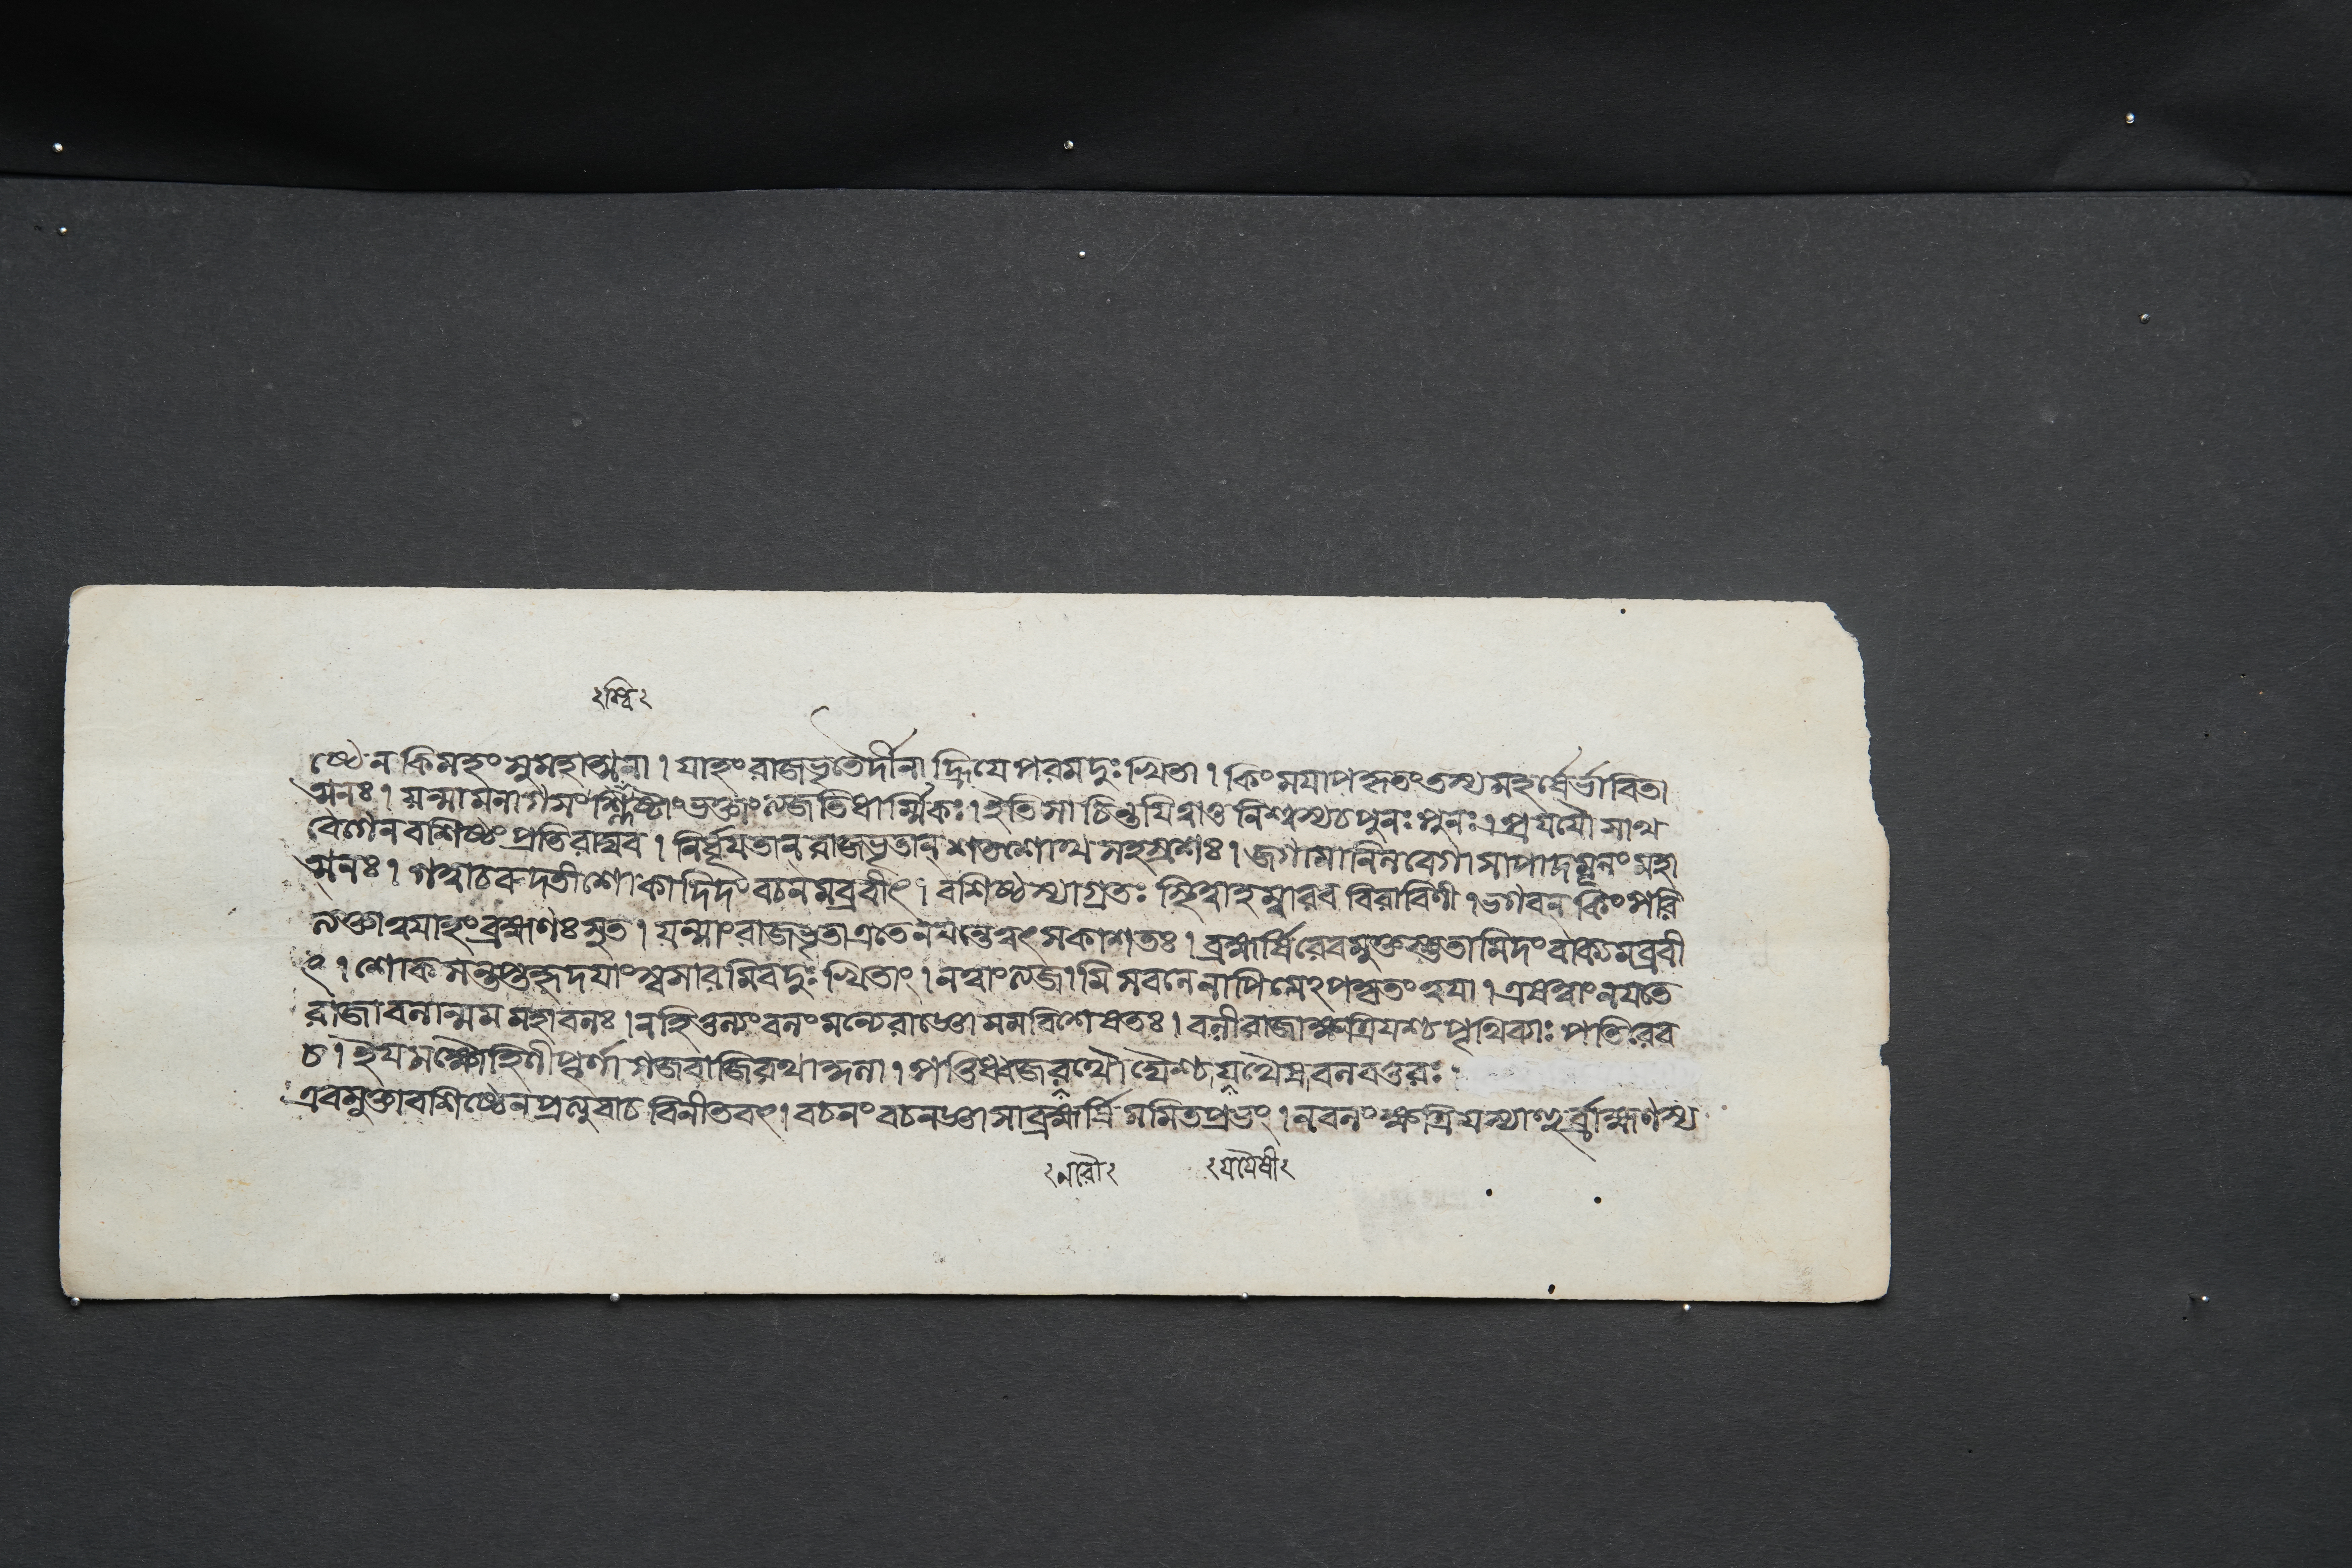 ঽশ্বিঽ
ষ্ঠেন কিমহং সুমহাত্মনা । যাহং রাজভৃতৈর্দীনা হ্রিযে পরমদুঃখিতা । কিং মযাপহৃতং তস্য মহর্ষের্ভাবিতা
ত্মনঃ । যন্মামনাগসং ভক্তাং ত্যজতি ধার্ম্মিকঃ । ইতি সা চিন্তযিত্বাতু নিশ্বস্য চ পুনঃ পুনঃ । প্রযযৌ সাথ
বেগেন বশিষ্ঠং প্রতি রাঘব । নির্ধূয তান্ রাজভৃতান্ শতশোথ সহস্রশঃ । জগামানিলবেগা সা পাদমূলং মহা
ত্মনঃ । গত্বা চ রুদতী শোকাদিদং বচনমব্রবীৎ । বশিষ্ঠস্যাগ্রতঃ স্থিত্বা হম্বারব বিরাবিণী । ভগবন্ কিং পরি
ত্যক্তা ত্বযাহং ব্রহ্মণঃ সুত । যন্মাং রাজভৃতা এতে নযন্তে ত্বৎসকাশতঃ । ব্রহ্মর্ষিরেবমুক্তস্তু তামিদং বাক্যমব্রবী
ৎ । শোকসন্তপ্তহৃদযাং স্বসারমিব দুঃখিতাং । ন ত্বাং ত্যজামি সবলে নাপি মেঽপকৃতং ত্বযা । এষ ত্বাং নযতে
রাজা বলান্মম মহাবলঃ । ন হি তুল্যং বলং মন্যে রাজ্ঞো মম বিশেষতঃ । বলী রাজা ক্ষত্রিযশ্চ পৃথিব্যাঃ পতিরেব
চ । ইযমক্ষৌহিণী পূর্ণা গজবাজিরথাঙ্গনা । পত্তিধ্বজ বলবত্তরঃ ।
এবমুক্তা বশিষ্ঠেন প্রত্যুবাচ বিনীতবৎ । বচনং বচনজ্ঞা সা ব্রহ্মর্ষিমমিতপ্রভং । ন বলং ক্ষত্রিযস্যাহুর্ব্রাহ্মণস্য